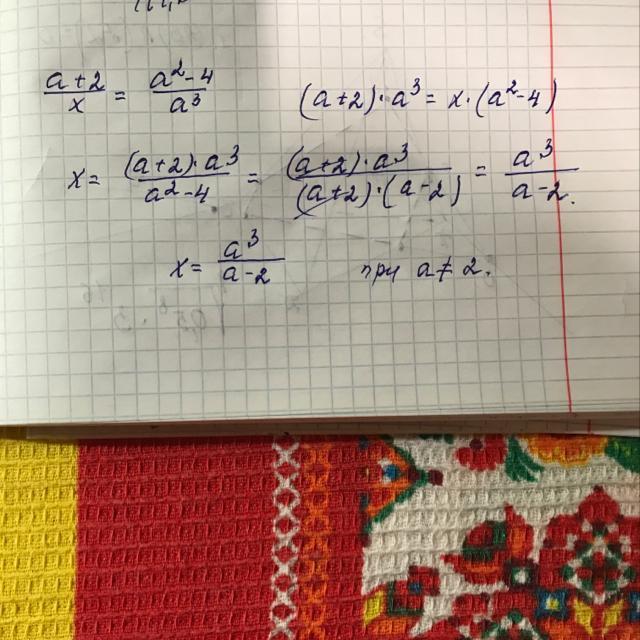 (a+2)/x = (a²-4)/a³    (a+2)·a³ = x·(a²-4)
x = ((a+2)·a³)/(a²-4) = ((a+2)·a³)/((a+2)·(a-2)) = a³/(a-2).
x = a³/(a-2)    при a ≠ 2.